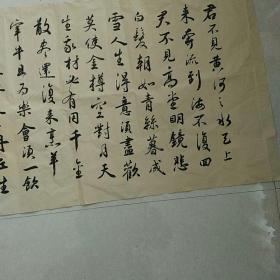 君不见黄河之水天上
来奔流到海不复回
君不见高堂明镜悲
白髮朝如青絲暮成
雪人生得意须盡歡
莫使金樽空對月天
生我材必有用千金
散盡還復来烹羊
宰牛且为樂會须一飲